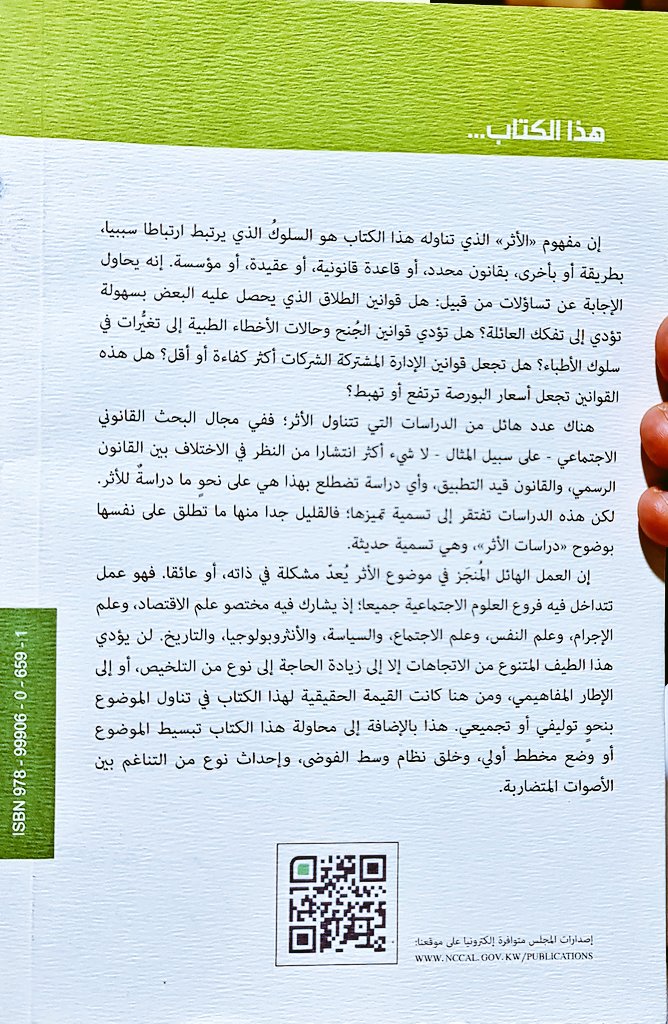 هذا الكتاب...
إن مفهوم «الأثر» الذي تناوله هذا الكتاب هو السلوكُ الذي يرتبط ارتباطا سببيا،
بطريقة أو بأخرى، بقانون محدد، أو قاعدة قانونية، أو عقيدة، أو مؤسسة. إنه يحاول
الإجابة عن تساؤلات من قبيل: هل قوانين الطلاق الذي يحصل عليه البعض بسهولة
تؤدي إلى تفكك العائلة؟ هل تؤدي قوانين الجُنح وحالات الأخطاء الطبية إلى تغيُّرات في
سلوك الأطباء؟ هل تجعل قوانين الإدارة المشتركة الشركات أكثر كفاءة أو أقل؟ هل هذه
القوانين تجعل أسعار البورصة ترتفع أو تهبط؟
هناك عدد هائل من الدراسات التي تتناول الأثر؛ ففي مجال البحث القانوني
الاجتماعي - على سبيل المثال - لا شيء أكثر انتشارا من النظر في الاختلاف بين القانون
الرسمي، والقانون قيد التطبيق، وأي دراسة تضطلع بهذا هي على نحوٍ ما دراسةٌ للأثر.
لكن هذه الدراسات تفتقر إلى تسمية تميزها؛ فالقليل جدا منها ما تطلق على نفسها
بوضوح «دراسات الأثر»، وهي تسمية حديثة.
إن العمل الهائل المُنجَز في موضوع الأثر يُعدّ مشكلة في ذاته، أو عائقا. فهو عمل
تتداخل فيه فروع العلوم الاجتماعية جميعا؛ إذ يشارك فيه مختصو علم الاقتصاد، وعلم
الإجرام، وعلم النفس، وعلم الاجتماع، والسياسة، والأنثروبولوجيا، والتاريخ. لن يؤدي
هذا الطيف المتنوع من الاتجاهات إلا إلى زيادة الحاجة إلى نوع من التلخيص، أو إلى
الإطار المفاهيمي، ومن هنا كانت القيمة الحقيقية لهذا الكتاب في تناول الموضوع
بنحوٍ توليفي أو تجميعي. هذا بالإضافة إلى محاولة هذا الكتاب تبسيط الموضوع
أو وضع مخطط أولي، وخلق نظام وسط الفوضى، وإحداث نوع من التناغم بين
الأصوات المتضاربة.
ISBN 978 - 99906 - 0 - 659 - 1
إصدارات المجلس متوافرة إلكترونيا على موقعنا:
WWW.NCCAL.GOV.KW/PUBLICATIONS